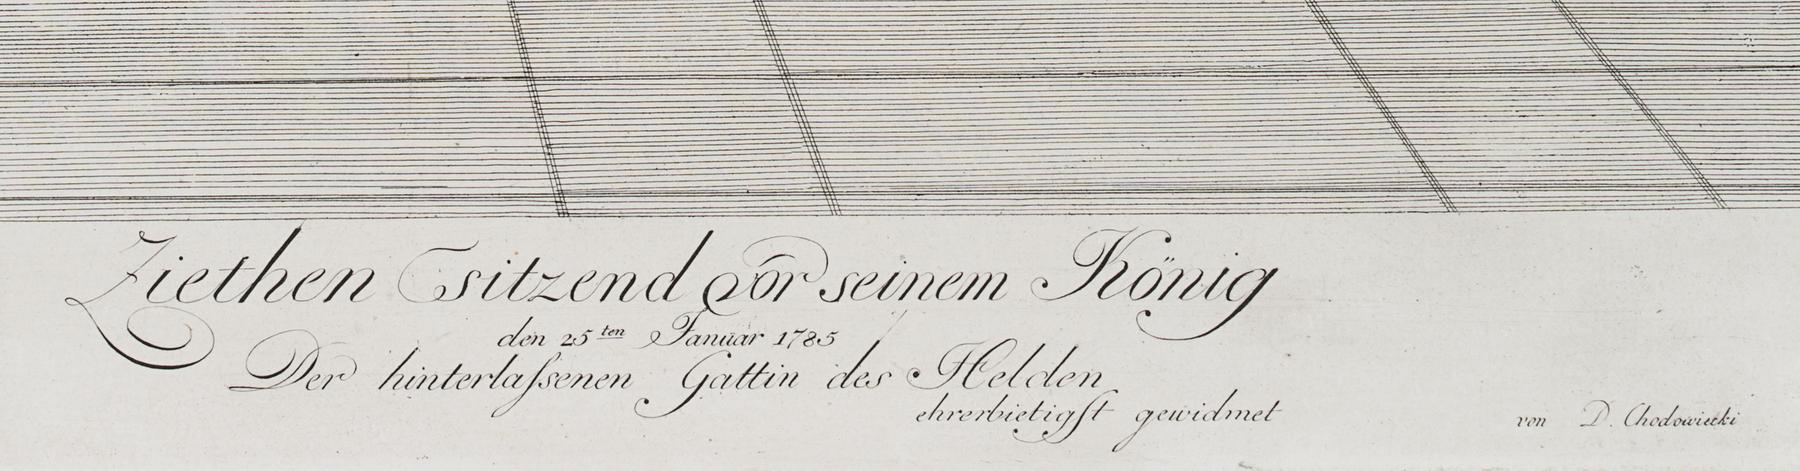 Ziethen sitzend vor seinem König
den 25ten Januar 1785
Der hinterlaſsenen Gattin des Helden
ehrerbietigſt gewidmet
von D. Chodowiecki